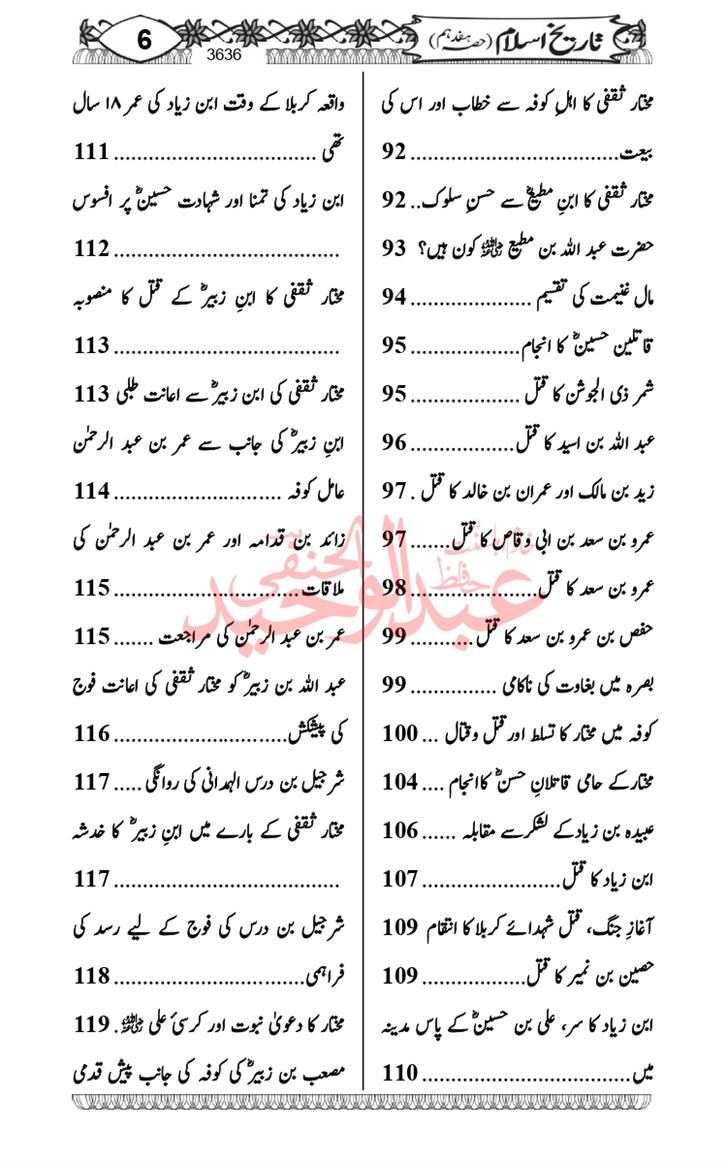 تاریخ اسلام (حصہ ہفدہم)
3636
6
مختار ثقفی کا اہلِ کوفہ سے خطاب اور اس کی
بیعت.................................. 92
مختار ثقفی کا ابنِ مطیعؓ سے حسنِ سلوک.. 92
حضرت عبد اللہ بن مطیع ﷜ کون ہیں؟ 93
مال غنیمت کی تقسیم .................... 94
قاتلین حسینؓ کا انجام.................. 95
شمر ذی الجوشن کا قتل .................. 95
عبد اللہ بن اسید کا قتل................. 96
زید بن مالک اور عمران بن خالد کا قتل . 97
عمرو بن سعد بن ابی وقاص کا قتل....... 97
عمرو بن سعد کا قتل..................... 98
حفص بن عمرو بن سعد کا قتل........... 99
بصرہ میں بغاوت کی ناکامی .............. 99
کوفہ میں مختار کا تسلط اور قتل وقتال ... 100
مختار کے حامی قاتلان حسنؓ کا انجام .... 104
عبیدہ بن زیاد کے لشکر سے مقابلہ ...... 106
ابن زیاد کا قتل....................... 107
آغازِ جنگ، قتل شہدائے کربلا کا انتقام 109
حصین بن نمیر کا قتل................. 109
ابن زیاد کا سر، علی بن حسینؓ کے پاس مدینہ
میں.................................. 110
واقعہ کربلا کے وقت ابن زیاد کی عمر ۱۸ سال
تھی ................................. 111
ابن زیاد کی تمنا اور شہادت حسینؓ پر افسوس
..................................... 112
مختار ثقفی کا ابنِ زبیرؓ کے قتل کا منصوبہ
..................................... 113
مختار ثقفی کی ابن زبیرؓ سے اعانت طلبی 113
ابنِ زبیرؓ کی جانب سے عمر بن عبد الرحمٰن
عامل کوفہ ............................ 114
زائد بن قدامہ اور عمر بن عبد الرحمٰن کی
ملاقات............................... 115
عمر بن عبد الرحمٰن کی مراجعت ....... 115
عبد اللہ بن زبیرؓ کو مختار ثقفی کی اعانت فوج
کی پیشکش............................. 116
شرجیل بن درس الہمدانی کی روانگی ..... 117
مختار ثقفی کے بارے میں ابنِ زبیرؓ کا خدشہ
..................................... 117
شرجیل بن درس کی فوج کے لیے رسد کی
فراہمی................................ 118
مختار کا دعویٰ نبوت اور کرسیٔ علی ﷜ . 119
مصعب بن زبیرؓ کی کوفہ کی جانب پیش قدمی
حافظ عبدالوحید الحنفی